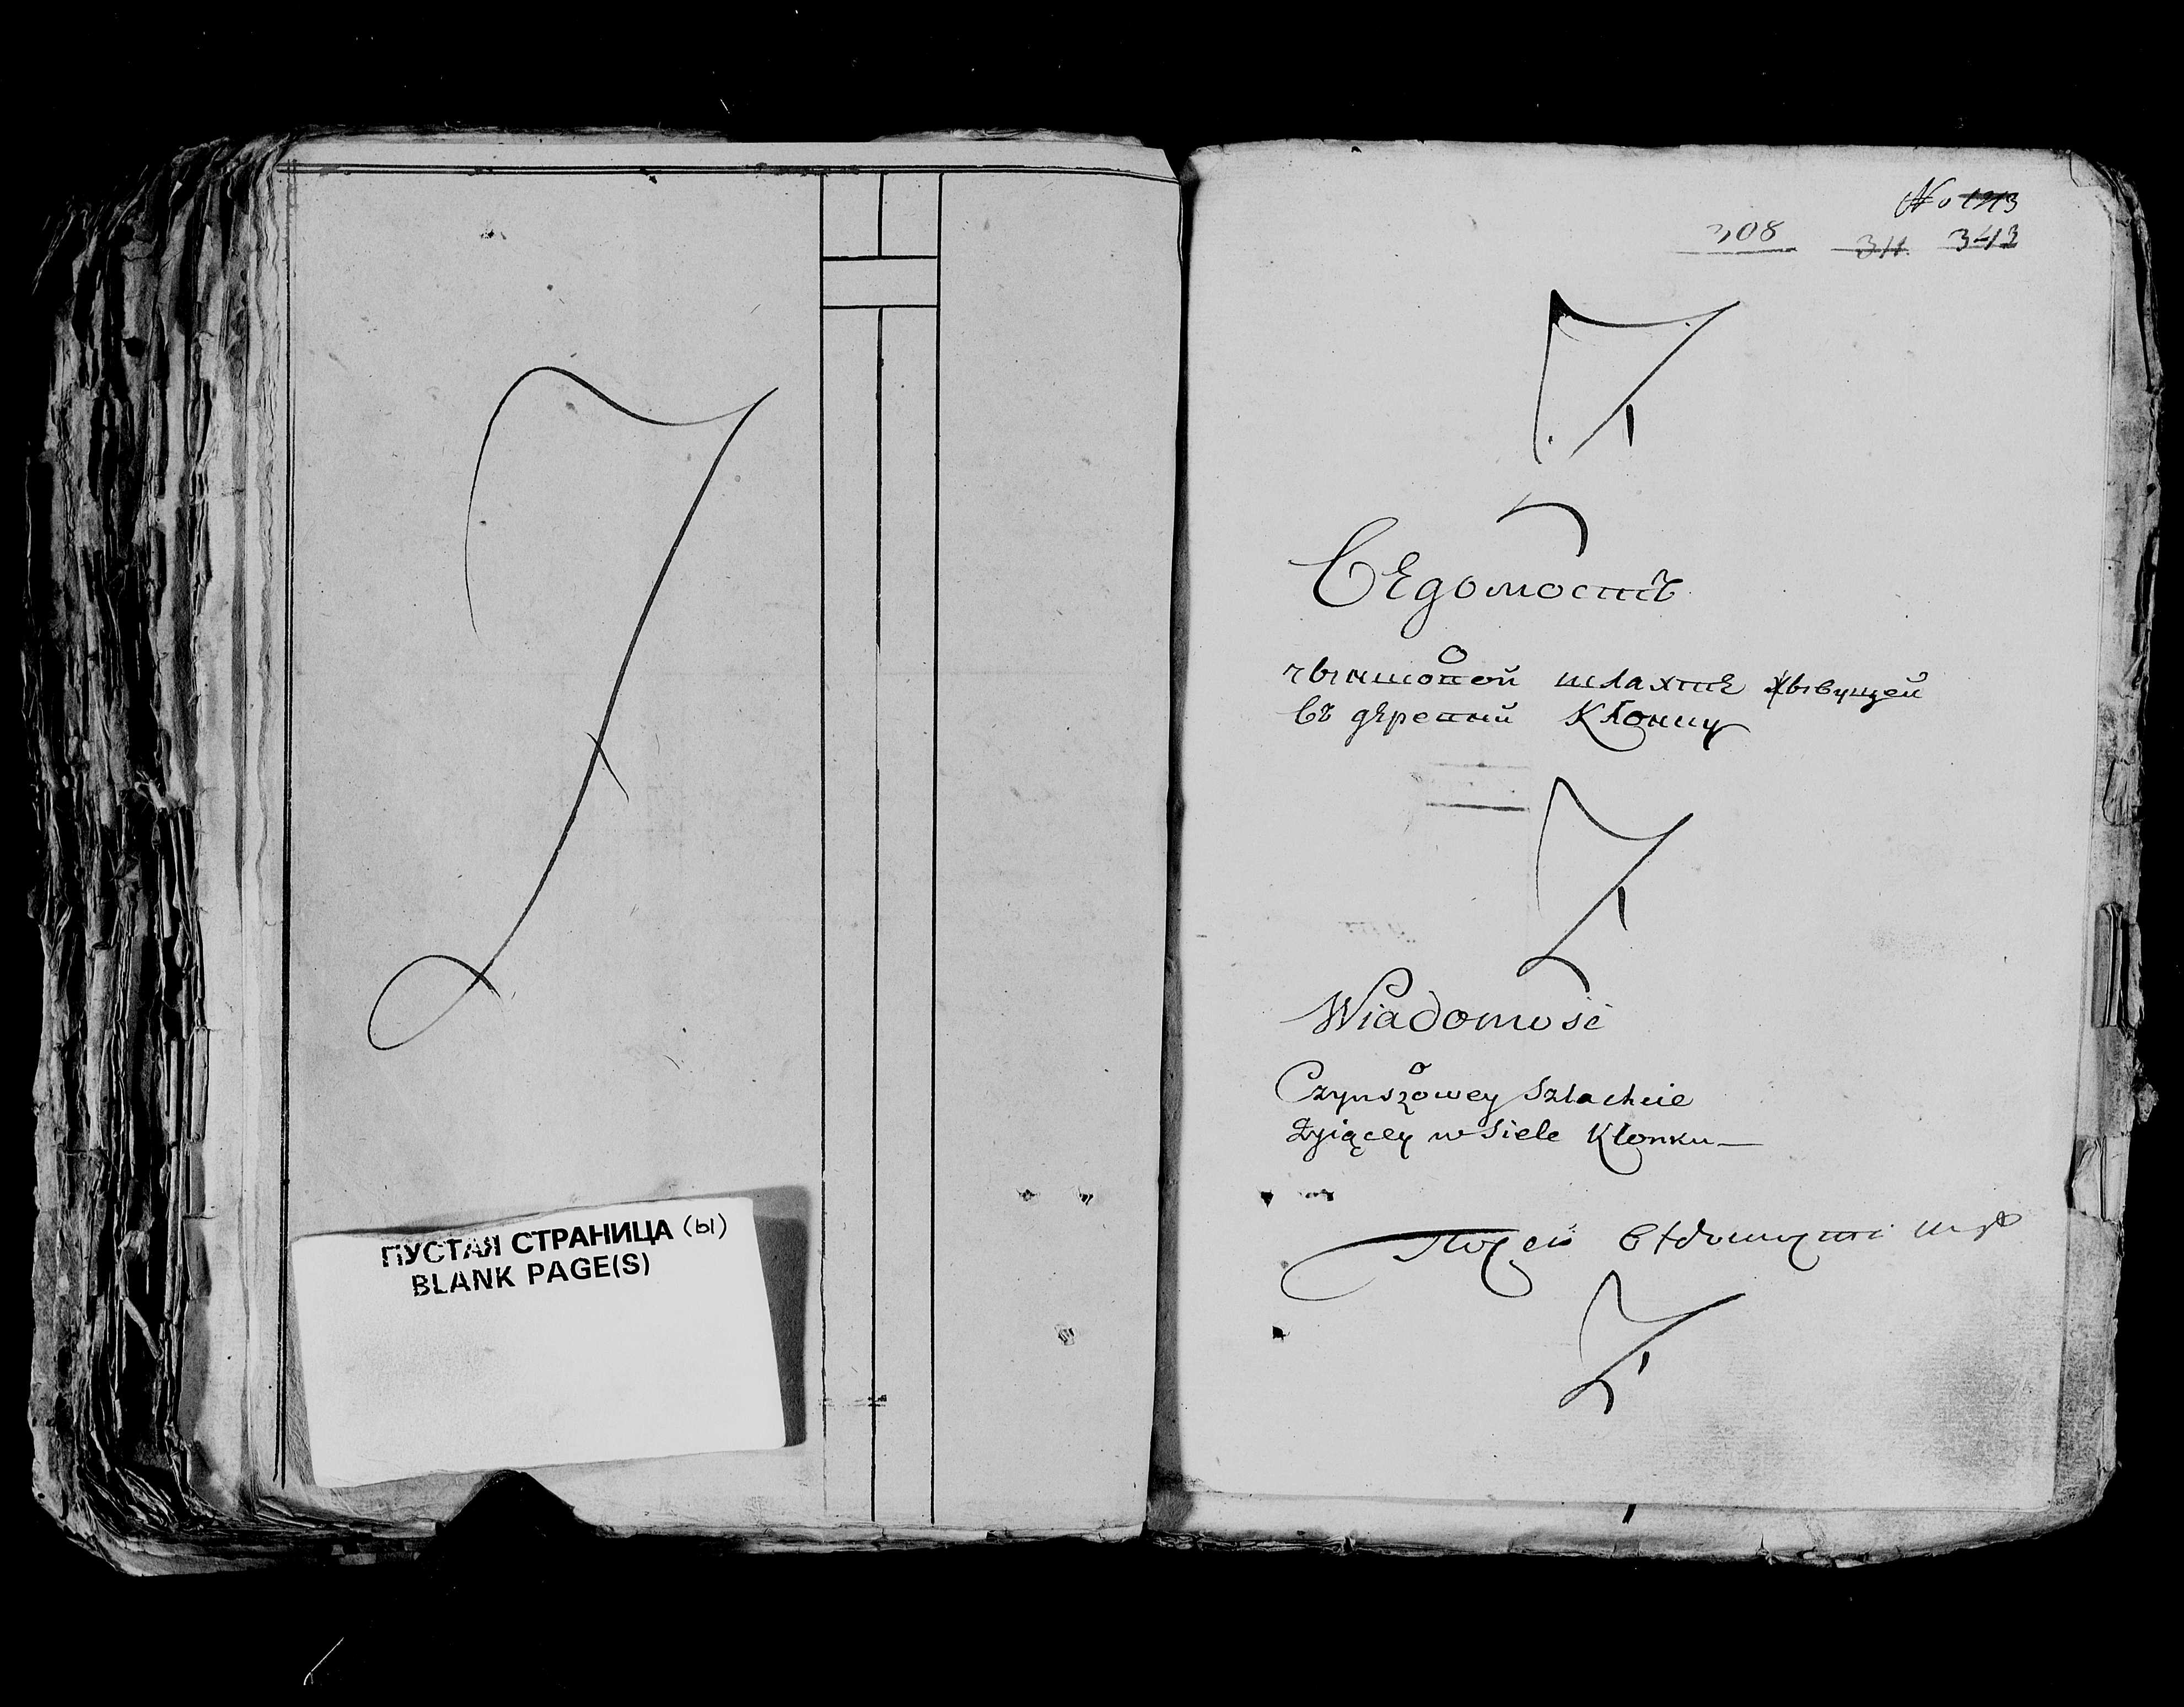 ПУСТАЯ СТРАНИЦА (ы)
BLANK PAGE(S)
№ 1213
308 311 343
Ведомость
О
чыншовой шляхте жывущей
въ деревни Клонку
Wiadomość
o
Czynszowey Szlachcie
Żyiącey w Siele Kłonku
По сей вѣдомости